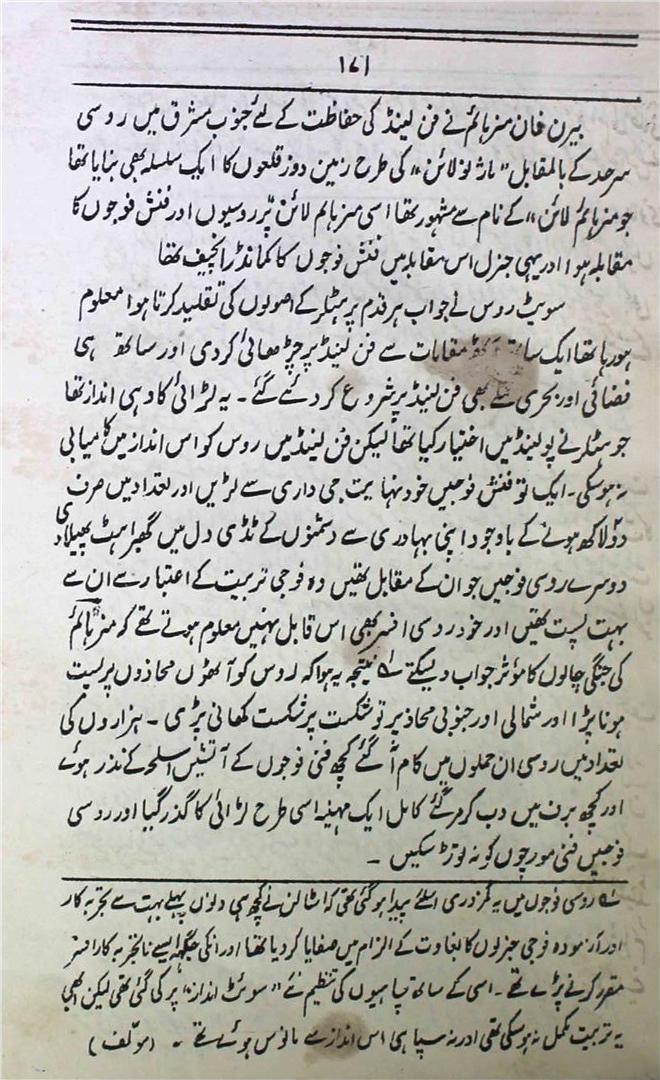 ۱۷۱
بیرن خان منرہائم نے فن لینڈ کی حفاظت کے لئے جنوب مشرق میں روسی
سرحد کے بالمقابل "ماژنولائن" کی طرح زمین دوز قلعوں کا ایک سلسلہ بھی بنایا تھا
جو منرہائم لائن" کے نام سے مشہور تھا اسی منرہائم لائن پر روسیوں اور فنش فوجوں کا
مقابلہ ہوا اور یہی جنرل اس مقابلہ میں فنش فوجوں کا کمانڈر انچیف تھا
سویٹ روس نے جواب ہر قدم پر ہٹلر کے اصولوں کی تقلید کرتا ہوا معلوم
ہو رہا تھا ایک ساتھ آٹھ مقامات سے فن لینڈ پر چڑھائی کر دی اور ساتھ ہی
فضائی اور بحری حملے بھی فن لینڈ پر شروع کر دئے گئے ۔ یہ لڑائی کا وہی انداز تھا
جو ہٹلر نے پولینڈ میں اختیار کیا تھا لیکن فن لینڈ میں روس کو اس انداز میں کامیابی
نہ ہو سکی ۔ ایک تو فنش فوجیں خود نہایت جی داری سے لڑیں اور تعداد میں صرف
دو لاکھ ہونے کے باوجود اپنی بہادری سے دشمنوں کے ٹڈی دل میں گھبراہٹ پھیلا دی
دوسرے روسی فوجیں جو ان کے مقابل تھیں وہ فوجی تربیت کے اعتبار سے ان سے
بہت پست تھیں اور خود روسی افسر بھی اس قابل نہیں معلوم ہوتے تھے کہ منرہائم
کی جنگی چالوں کا مؤثر جواب دیسکتے لے نتیجہ یہ ہوا کہ روس کو آٹھوں محاذوں پر پست
ہونا پڑا اور شمالی اور جنوبی محاذ پر تو شکست پر شکست کھانی پڑی ۔ ہزاروں کی
تعداد میں روسی ان حملوں میں کام آ گئے کچھ فنی فوجوں کے آتشیں اسلحہ کے نذر ہوئے
اور کچھ برف میں دب کر مر گئے کامل ایک مہینہ اسی طرح لڑائی کا گذر گیا اور روسی
فوجیں فنی مورچوں کو نہ توڑ سکیں ۔
لے روسی فوجوں میں یہ کمزوری اسلئے پیدا ہو گئی تھی کہ اسٹالن نے کچھ ہی دنوں پہلے بہت سے تجربہ کار
اور آزمودہ فوجی جنرلوں کا بغاوت کے الزام میں صفایا کر دیا تھا اور انکی جگہ ایسے ناتجربہ کار افسر
مقرر کرنے پڑے تھے ۔ اسی کے ساتھ سپاہیوں کی تنظیم نئے "سوئٹ انداز" پر کی گئی تھی لیکن ابھی
یہ تربیت مکمل نہ ہو سکی تھی اور نہ سپاہی اس انداز سے مانوس ہوئے تھے ۔ (مولف)